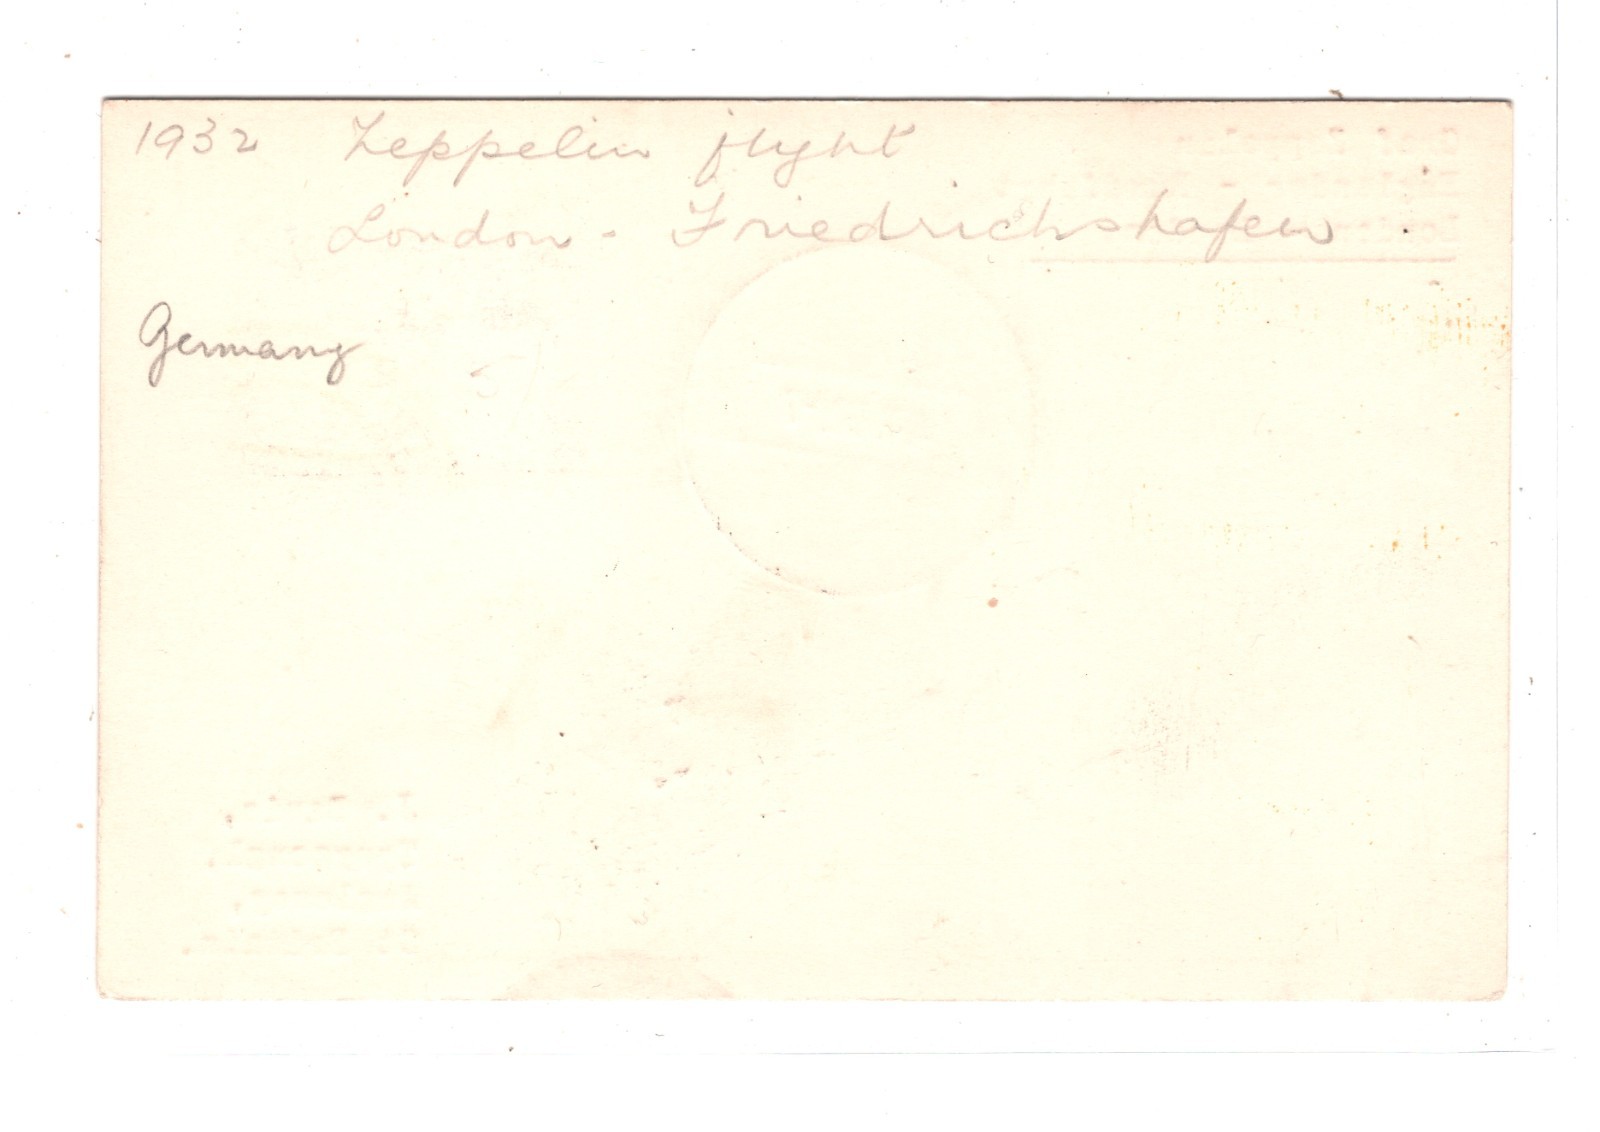 1932 Zeppelin flight
London - Friedrichshafen
Germany